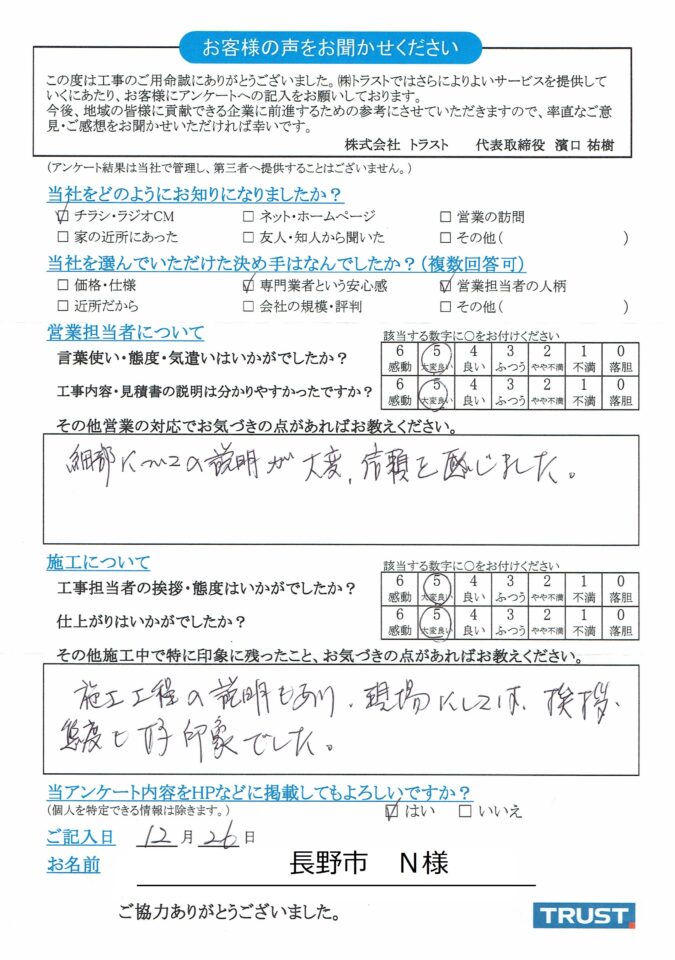 お客様の声をお聞かせください
この度は工事のご用命誠にありがとうございました。㈱トラストではさらによりよいサービスを提供して
いくにあたり、お客様にアンケートへの記入をお願いしております。
今後、地域の皆様に貢献できる企業に前進するための参考にさせていただきますので、率直なご意
見・ご感想をお聞かせいただければ幸いです。
株式会社 トラスト 代表取締役 濱口 祐樹
(アンケート結果は当社で管理し、第三者へ提供することはございません。)
当社をどのようにお知りになりましたか?
☑ チラシ・ラジオCM □ ネット・ホームページ □ 営業の訪問
□ 家の近所にあった □ 友人・知人から聞いた □ その他( )
当社を選んでいただけた決め手はなんでしたか?(複数回答可)
□ 価格・仕様 ☑ 専門業者という安心感 ☑ 営業担当者の人柄
□ 近所だから □ 会社の規模・評判 □ その他( )
営業担当者について 該当する数字に○をお付けください
言葉使い・態度・気遣いはいかがでしたか? 6 5 4 3 2 1 0
感動 大変良い 良い ふつう やや不満 不満 落胆
工事内容・見積書の説明は分かりやすかったですか? 6 5 4 3 2 1 0
感動 大変良い 良い ふつう やや不満 不満 落胆
その他営業の対応でお気づきの点があればお教えください。
細部についての説明が大変、信頼を感じました。
施工について 該当する数字に○をお付けください
工事担当者の挨拶・態度はいかがでしたか? 6 5 4 3 2 1 0
感動 大変良い 良い ふつう やや不満 不満 落胆
仕上がりはいかがでしたか? 6 5 4 3 2 1 0
感動 大変良い 良い ふつう やや不満 不満 落胆
その他施工中で特に印象に残ったこと、お気づきの点があればお教えください。
施工工程の説明もあり、現場にしては、挨拶、
態度も好印象でした。
当アンケート内容をHPなどに掲載してもよろしいですか?
(個人を特定できる情報は除きます。) ☑ はい □ いいえ
ご記入日 12 月 26 日
お名前 長野市 N様
ご協力ありがとうございました。
TRUST.